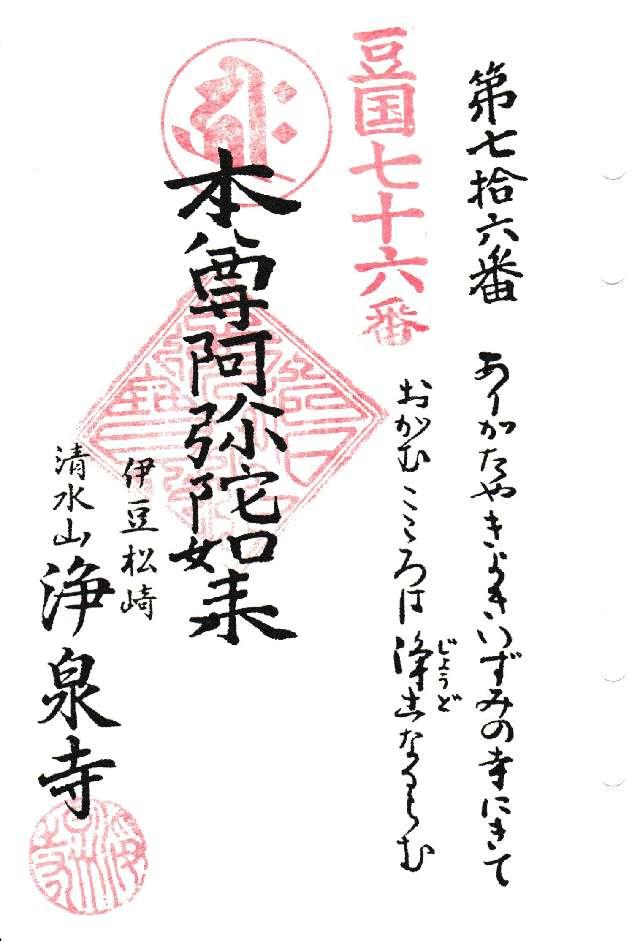 第七拾六番
ありがたやきよきいずみの寺にきて
おがむこころは浄土なるらむ
じょうど
豆国七十六番
本尊阿弥陀如来
伊豆松崎
清水山
浄泉寺